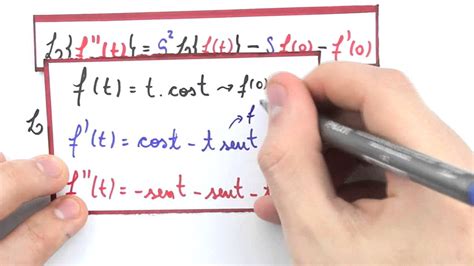 L{f''(t)} = S²L{f(t)} - S f(0) - f'(0)
f(t) = t. cost → f(0)
L
f'(t) = cost - t sent → f
f''(t) = -sent - sent -